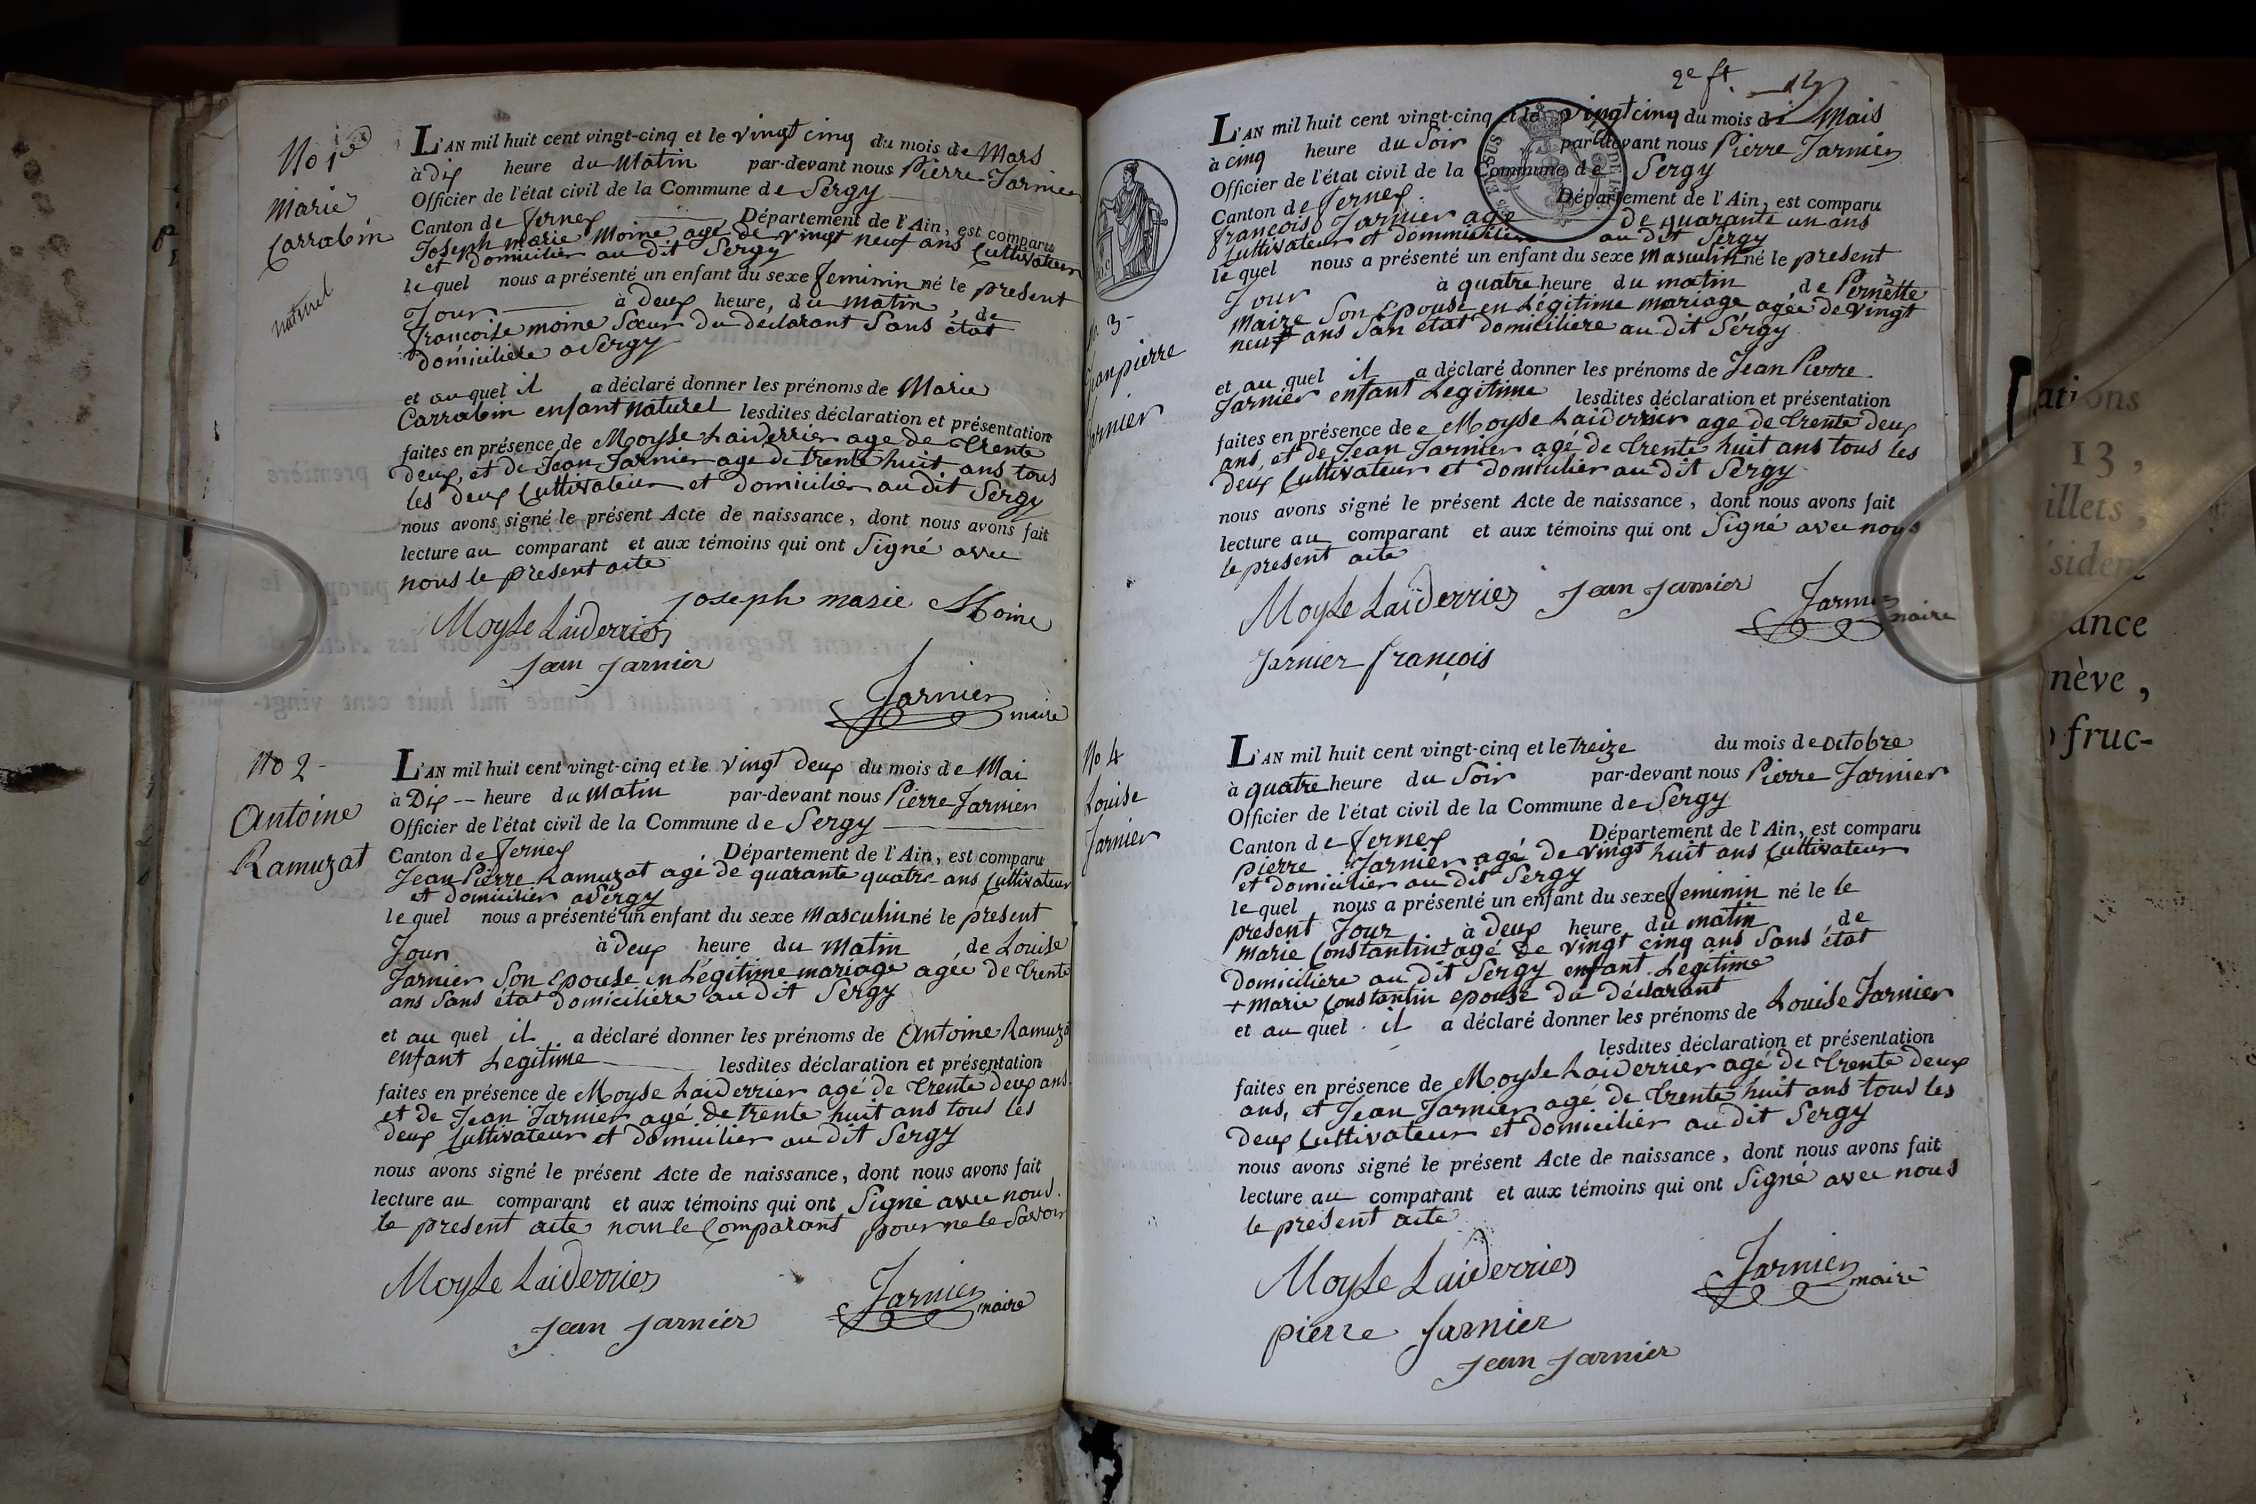 No 1er
Marie
Carrabin
naturel
L'AN mil huit cent vingt-cinq et le vingt cinq du mois de Mars
à Dix heure du Matin par-devant nous Pierre Jarnier
Officier de l'état civil de la Commune de Sergy
Canton de Fernex Département de l'Ain, est comparu
Joseph marie Moine age de vingt neuf ans Cultivateur
et domicilier au dit Sergy
le quel nous a présenté un enfant du sexe feminin né le present
Jour à deux heure, du matin, de
françoise moine Sœur du declarant Sans état
domiciliere a Sergy
et au quel il a déclaré donner les prénoms de Marie
Carrabin enfant naturel lesdites déclaration et présentation
faites en présence de Moyse Laiderrier age de trente
deux, et de Jean Jarnier age de trente huit ans tous
les deux Cultivateur et domicilier au dit Sergy
nous avons signé le présent Acte de naissance, dont nous avons fait
lecture au comparant et aux témoins qui ont Signé avec
nous le present acte
Joseph marie Moine
Moyse Laiderrier
Jean Jarnier
Jarnier maire
No 2
Antoine
Ramuzat
L'AN mil huit cent vingt-cinq et le vingt deux du mois de Mai
à Dix heure du Matin par-devant nous Pierre Jarnier
Officier de l'état civil de la Commune de Sergy
Canton de Fernex Département de l'Ain, est comparu
Jean Pierre Ramuzat agé de quarante quatre ans Cultivateur
et domicilier a Sergy
le quel nous a présenté un enfant du sexe Masculin né le present
Jour à deux heure du Matin de Louise
Jarnier Son Epouse en Légitime mariage agée de trente
ans Sans état domiciliere au dit Sergy
et au quel il a déclaré donner les prénoms de Antoine Ramuza
enfant Legitime lesdites déclaration et présentation
faites en présence de Moyse Laiderrier agé de trente deux ans
et de Jean Jarnier agé de trente huit ans tous les
deux Cultivateur et domicilier au dit Sergy
nous avons signé le présent Acte de naissance, dont nous avons fait
lecture au comparant et aux témoins qui ont Signé avec nous.
le present acte non le Comparant pour ne le Savoir
Moyse Laiderrier
Jean Jarnier
Jarnier maire
2e ft.
No 3
Jean pierre
Jarnier
L'AN mil huit cent vingt-cinq et le vingt cinq du mois de Mais
à cinq heure du Soir par-devant nous Pierre Jarnier
Officier de l'état civil de la Commune de Sergy
Canton de Fernex Département de l'Ain, est comparu
françois Jarnier age de quarante un ans
Cultivateur et dommicilier au dit Sergy
le quel nous a présenté un enfant du sexe Masculin né le present
Jour à quatre heure du matin de Pernette
Maire Son Epouse en Légitime mariage agée de vingt
neuf ans San état domiciliere au dit Sergy
et au quel il a déclaré donner les prénoms de Jean Pierre
Jarnier enfant Legitime lesdites déclaration et présentation
faites en présence de e Moyse Laiderrier age de trente deux
ans, et de Jean Jarnier agé de trente huit ans tous les
deux Cultivateur et domicilier au dit Sergy
nous avons signé le présent Acte de naissance, dont nous avons fait
lecture au comparant et aux témoins qui ont Signé avec nous
le present acte
Moyse Laiderrier Jean Jarnier
Jarnier maire
Jarnier françois
No 4
Louise
Jarnier
L'AN mil huit cent vingt-cinq et le treize du mois de octobre
à quatre heure du Soir par-devant nous Pierre Jarnier
Officier de l'état civil de la Commune de Sergy
Canton de Fernex Département de l'Ain, est comparu
Pierre Jarnier agé de vingt huit ans Cultivateur
et domicilier au dit Sergy
le quel nous a présenté un enfant du sexe feminin né le le
present Jour à deux heure du matin de
Marie Constantin + agé de vingt cinq ans Sans état
Domiciliere au dit Sergy enfant Legitime
+ Marie Constantin epouse du déclarant
et au quel il a déclaré donner les prénoms de Louise Jarnier
lesdites déclaration et présentation
faites en présence de Moyse Laiderrier agé de trente deux
ans, et Jean Jarnier agé de trente huit ans tous les
deux Cultivateur et domicilier au dit Sergy
nous avons signé le présent Acte de naissance, dont nous avons fait
lecture au comparant et aux témoins qui ont Signé avec nous
le présent acte
Moyse Laiderrier
Jarnier maire
pierre Jarnier
Jean Jarnier
ations
13,
illets,
siden
ance
nève,
fruc-